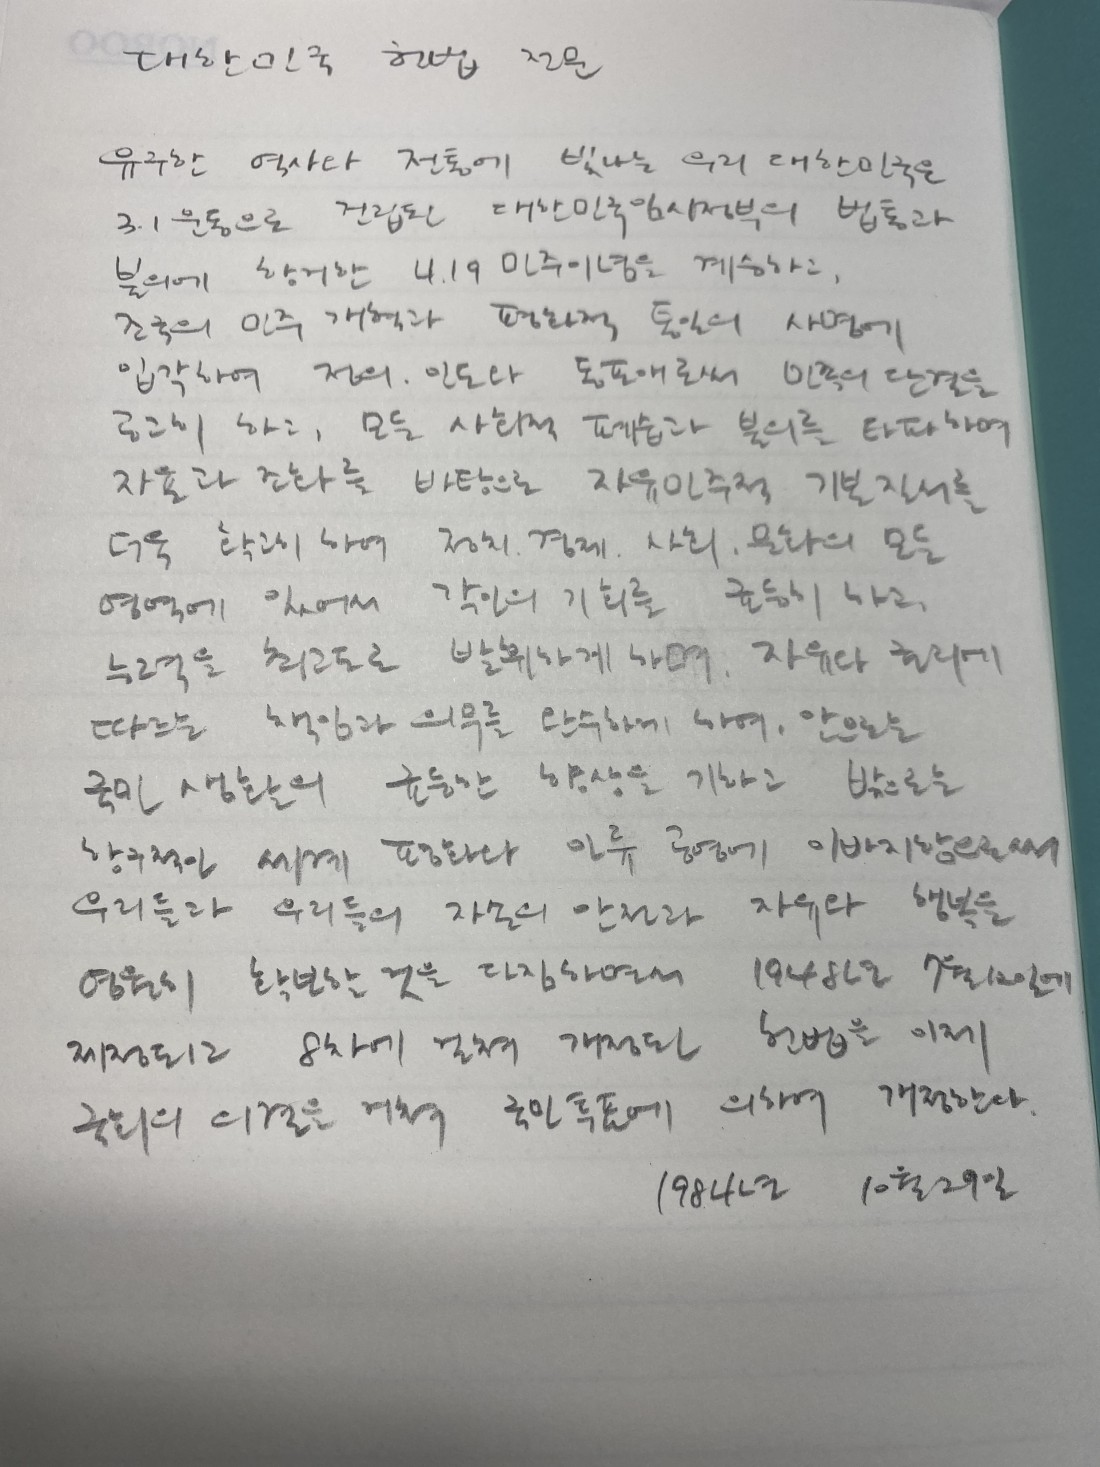 대한민국 헌법 전문
유구한 역사와 전통에 빛나는 우리 대한민국은
3.1 운동으로 건립된 대한민국임시정부의 법통과
불의에 항거한 4.19 민주이념을 계승하고,
조국의 민주 개혁과 평화적 통일의 사명에
입각하여 정의. 인도와 동포애로써 민족의 단결을
공고히 하고, 모든 사회적 폐습과 불의를 타파하며
자율과 조화를 바탕으로 자유민주적 기본질서를
더욱 확고히 하여 정치. 경제. 사회. 문화의 모든
영역에 있어서 각인의 기회를 균등히 하고,
능력을 최고도로 발휘하게 하며, 자유와 권리에
따르는 책임과 의무를 완수하게 하여, 안으로는
국민 생활의 균등한 향상을 기하고 밖으로는
항구적인 세계 평화와 인류 공영에 이바지함으로써
우리들과 우리들의 자손의 안전과 자유와 행복을
영원히 확보할 것을 다짐하면서 1948년 7월12일에
제정되고 8차에 걸쳐 개정된 헌법을 이제
국회의 의결을 거쳐 국민투표에 의하여 개정한다.
1984년 10월29일